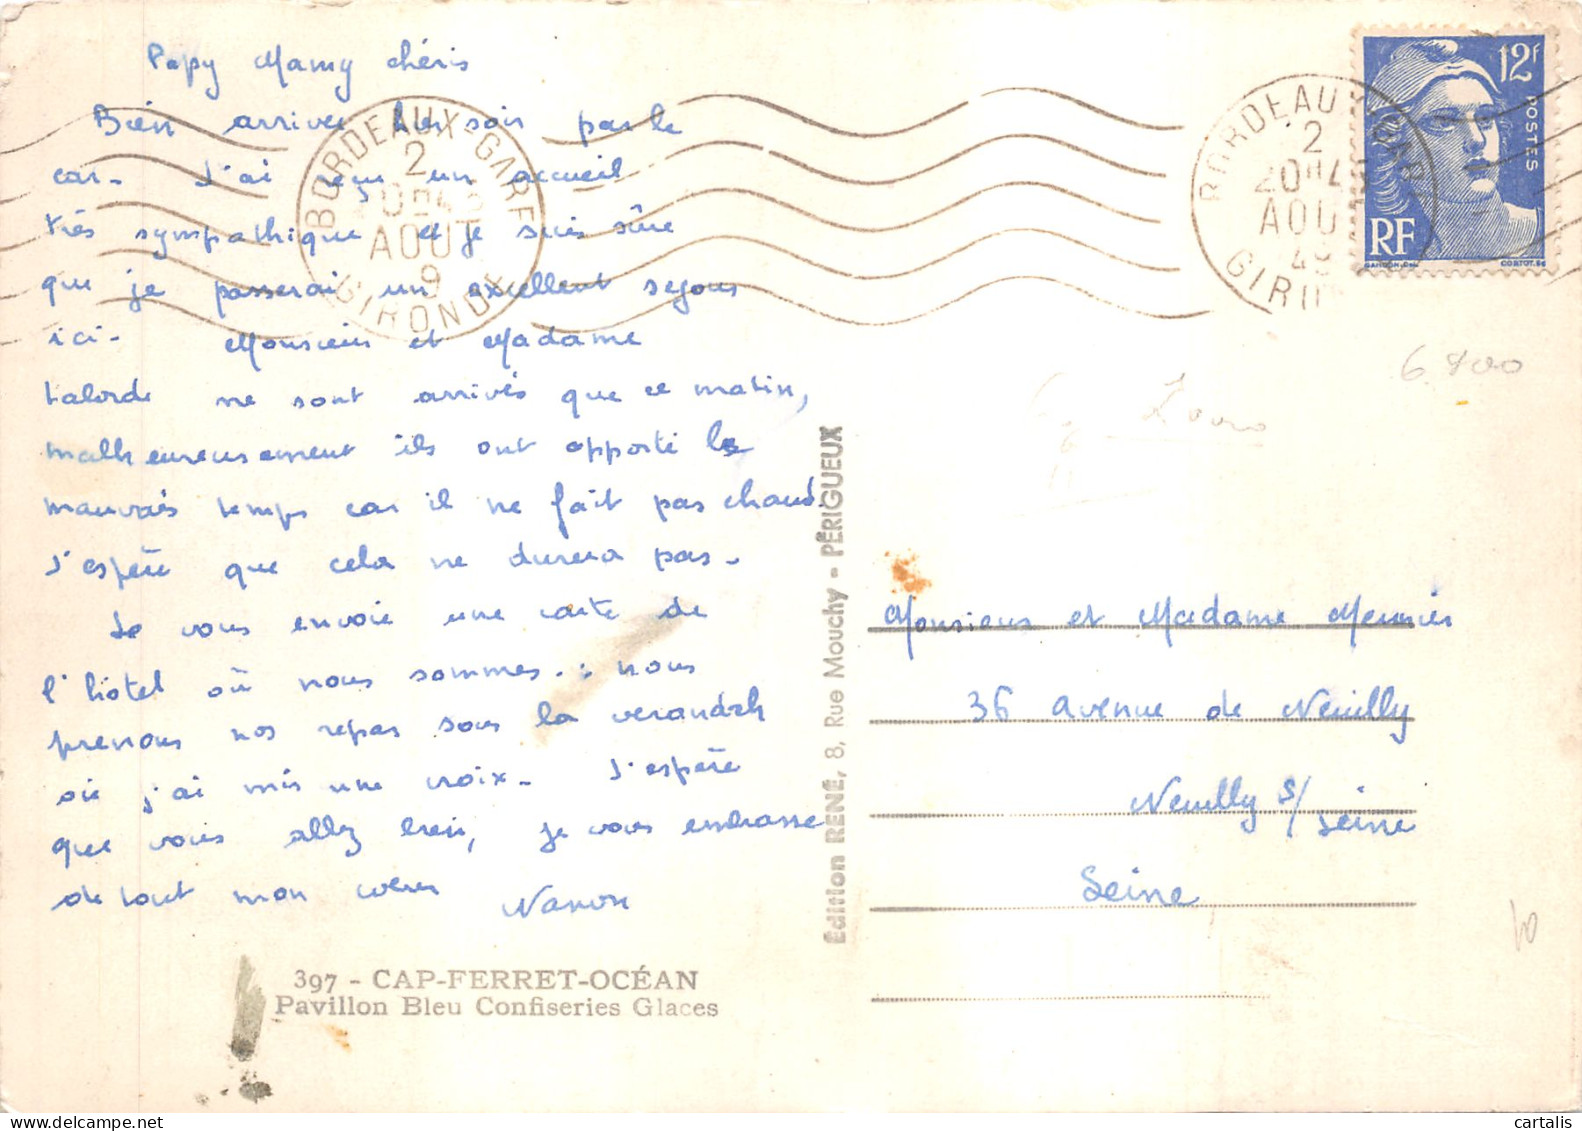 Papy Mamy chéris
Bien arrivée hier soir par le
car. J'ai reçu un accueil
très sympathique et je suis sûre
que je passerai un excellent sejour
ici. Monsieur et Madame
Laborde ne sont arrivés que ce matin,
malheureusement ils ont apporté le
mauvais temps car il ne fait pas chaud.
J'espère que cela ne durera pas.
Je vous envoie une carte de
l'hôtel où nous sommes. : nous
prenons nos repas sous la verandah
où j'ai mis une croix. J'espère
que vous allez bien, je vous embrasse
de tout mon cœur Nanon
397 - CAP-FERRET-OCÉAN
Pavillon Bleu Confiseries Glaces
Édition RENÉ, 8, Rue Mouchy - PÉRIGUEUX
BORDEAUX-GARE
2
AOUT
9
GIRONDE
BORDEAUX GAR
2
20H45
AOU
49
GIRO
12F
POSTES
RF
GANDON.Del.
CORTOT.Sc
6.800
Monsieur et Madame Meunier
36 avenue de Neuilly
Neuilly s/Seine
Seine
10
cartalis